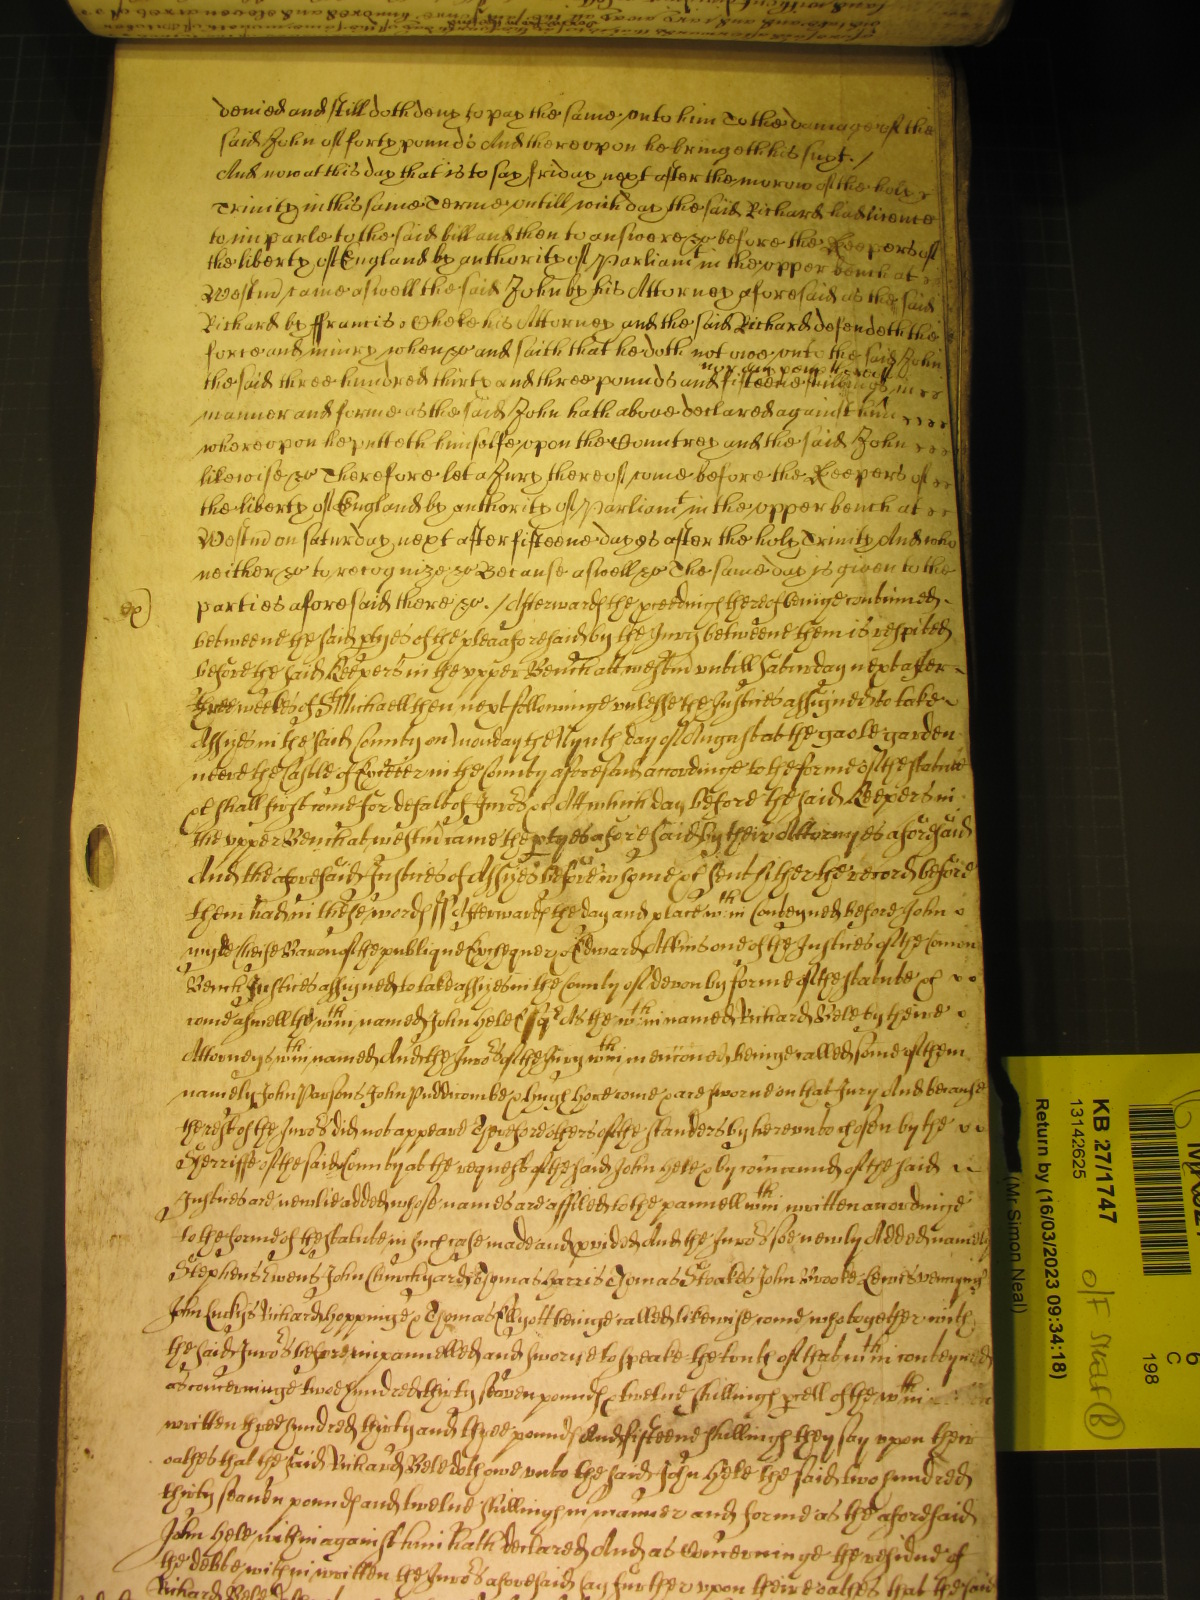 denied and still doth deny to pay the same unto him To the damage of the
said John of forty pounds And thereopon he bringeth his suyt /
And now at this day that is to say friday next after the morow of the holy
Trinity in this same Terme untill wich day the said Richard had licence
to imparle to the said bill and then to answere &c before the Keepers of
the liberty of England by authority of Parliamt in the opper bench at
Westm came aswell the said John by his Attorney aforesaid as the said
Richard by ffrancis his Attorney and the said Richard defendeth the
force and iniury when &c and saith that he doth not owe onto the said John
nor any peny thereof
the said three hundred thirty and three pounds and fifteene shillings in
manner and forme as the said John hath above declared against him
whereopon he putteth himselfe opon the Countrey and the said John
likewise &c Therefore let a Jury thereof come before the Keepers of
the liberty of England by authority of Parliamt in the opper bench at
Westm on saturday next after fifteene dayes after the holy Trinity And who
neither &c to recognize &c Because aswell &c The same day is given to the
parties aforesaid there &c. / Afterwards the pceedings thereof beinge continued
betweene the said ptyes of the plea aforesaid by the Jury betweene them is respited
before the said Keepers in the upper Bench att westm untill Saturday next after
three weekes of St Michaell then next followinge unlesse the Justices assigned to take
Assizes in the said County on Monday the Nynth day of August at the gaole garden
neere the Castle of Exceter in the County aforesaid accordinge to the forme of the statute
&c shall first come for default of Juro's &c Att which day before the said Keepers in
the upper Bench at westm came the ptyes aforesaid by their Attornyes aforesaid
And the aforesaid Justices of Assizes before whome &c sent hither the record before
them had in these words ss Afterwards the day and place wthin Conteyned before John
wylde Cheife Baron of the publique Exchequer & Edward Atkins one of the Justices of the Comon
Bench Justices assigned to take assizes in the County of devon by forme of the statute &c
come aswell the wthin named John Hele Esqr As the wthin named Richard Bele by theire
Attorneys wthin named And the Juro's of the Jury wthin mencioned beinge called some of them
namely John Parsons John Puddicombe & Hugh Horecome &c are sworne on that Jury And because
the rest of the Juro's did not appeare Therefore others of the standers by hereunto chosen by the
Sherriffe of the said County at the request of the said John Hele & by command of the said
Justices are newlie added whose names are affiled to the pannell wthin written accordinge
to the forme of the statute in such case made and pvided And the Juro's soe newly Added namely
Stephen Ewens John Churchyard Thomas Harris Thomas Stoakes John Brooke Lewis
John Richard Hoppinge & Thomas Ellyott beinge called likewise come who together with
the said Juro's before impannelled and sworne to speake the truth of that wthin conteyned
as concerninge twoe hundred thirty seaven pounds & twelve shillings pcell of the wthin
written three hundred thirty and three pounds And fifteene shillings they say upon their
oathes that the said Richard Bele doth owe unto the said John Hele the said two hundred
thirty seaven pounds and twelve shillings in manner and forme as the aforesaid
John Hele within against him hath declared And as Concerninge the residue of
the debte within written the Juro's aforesaid say further upon theire oathes that the said
Richard Bele
KB 27/1747
13142625
Return by (16/03/2023 09:34:18)
(Mr Simon Neal)
C
198
6